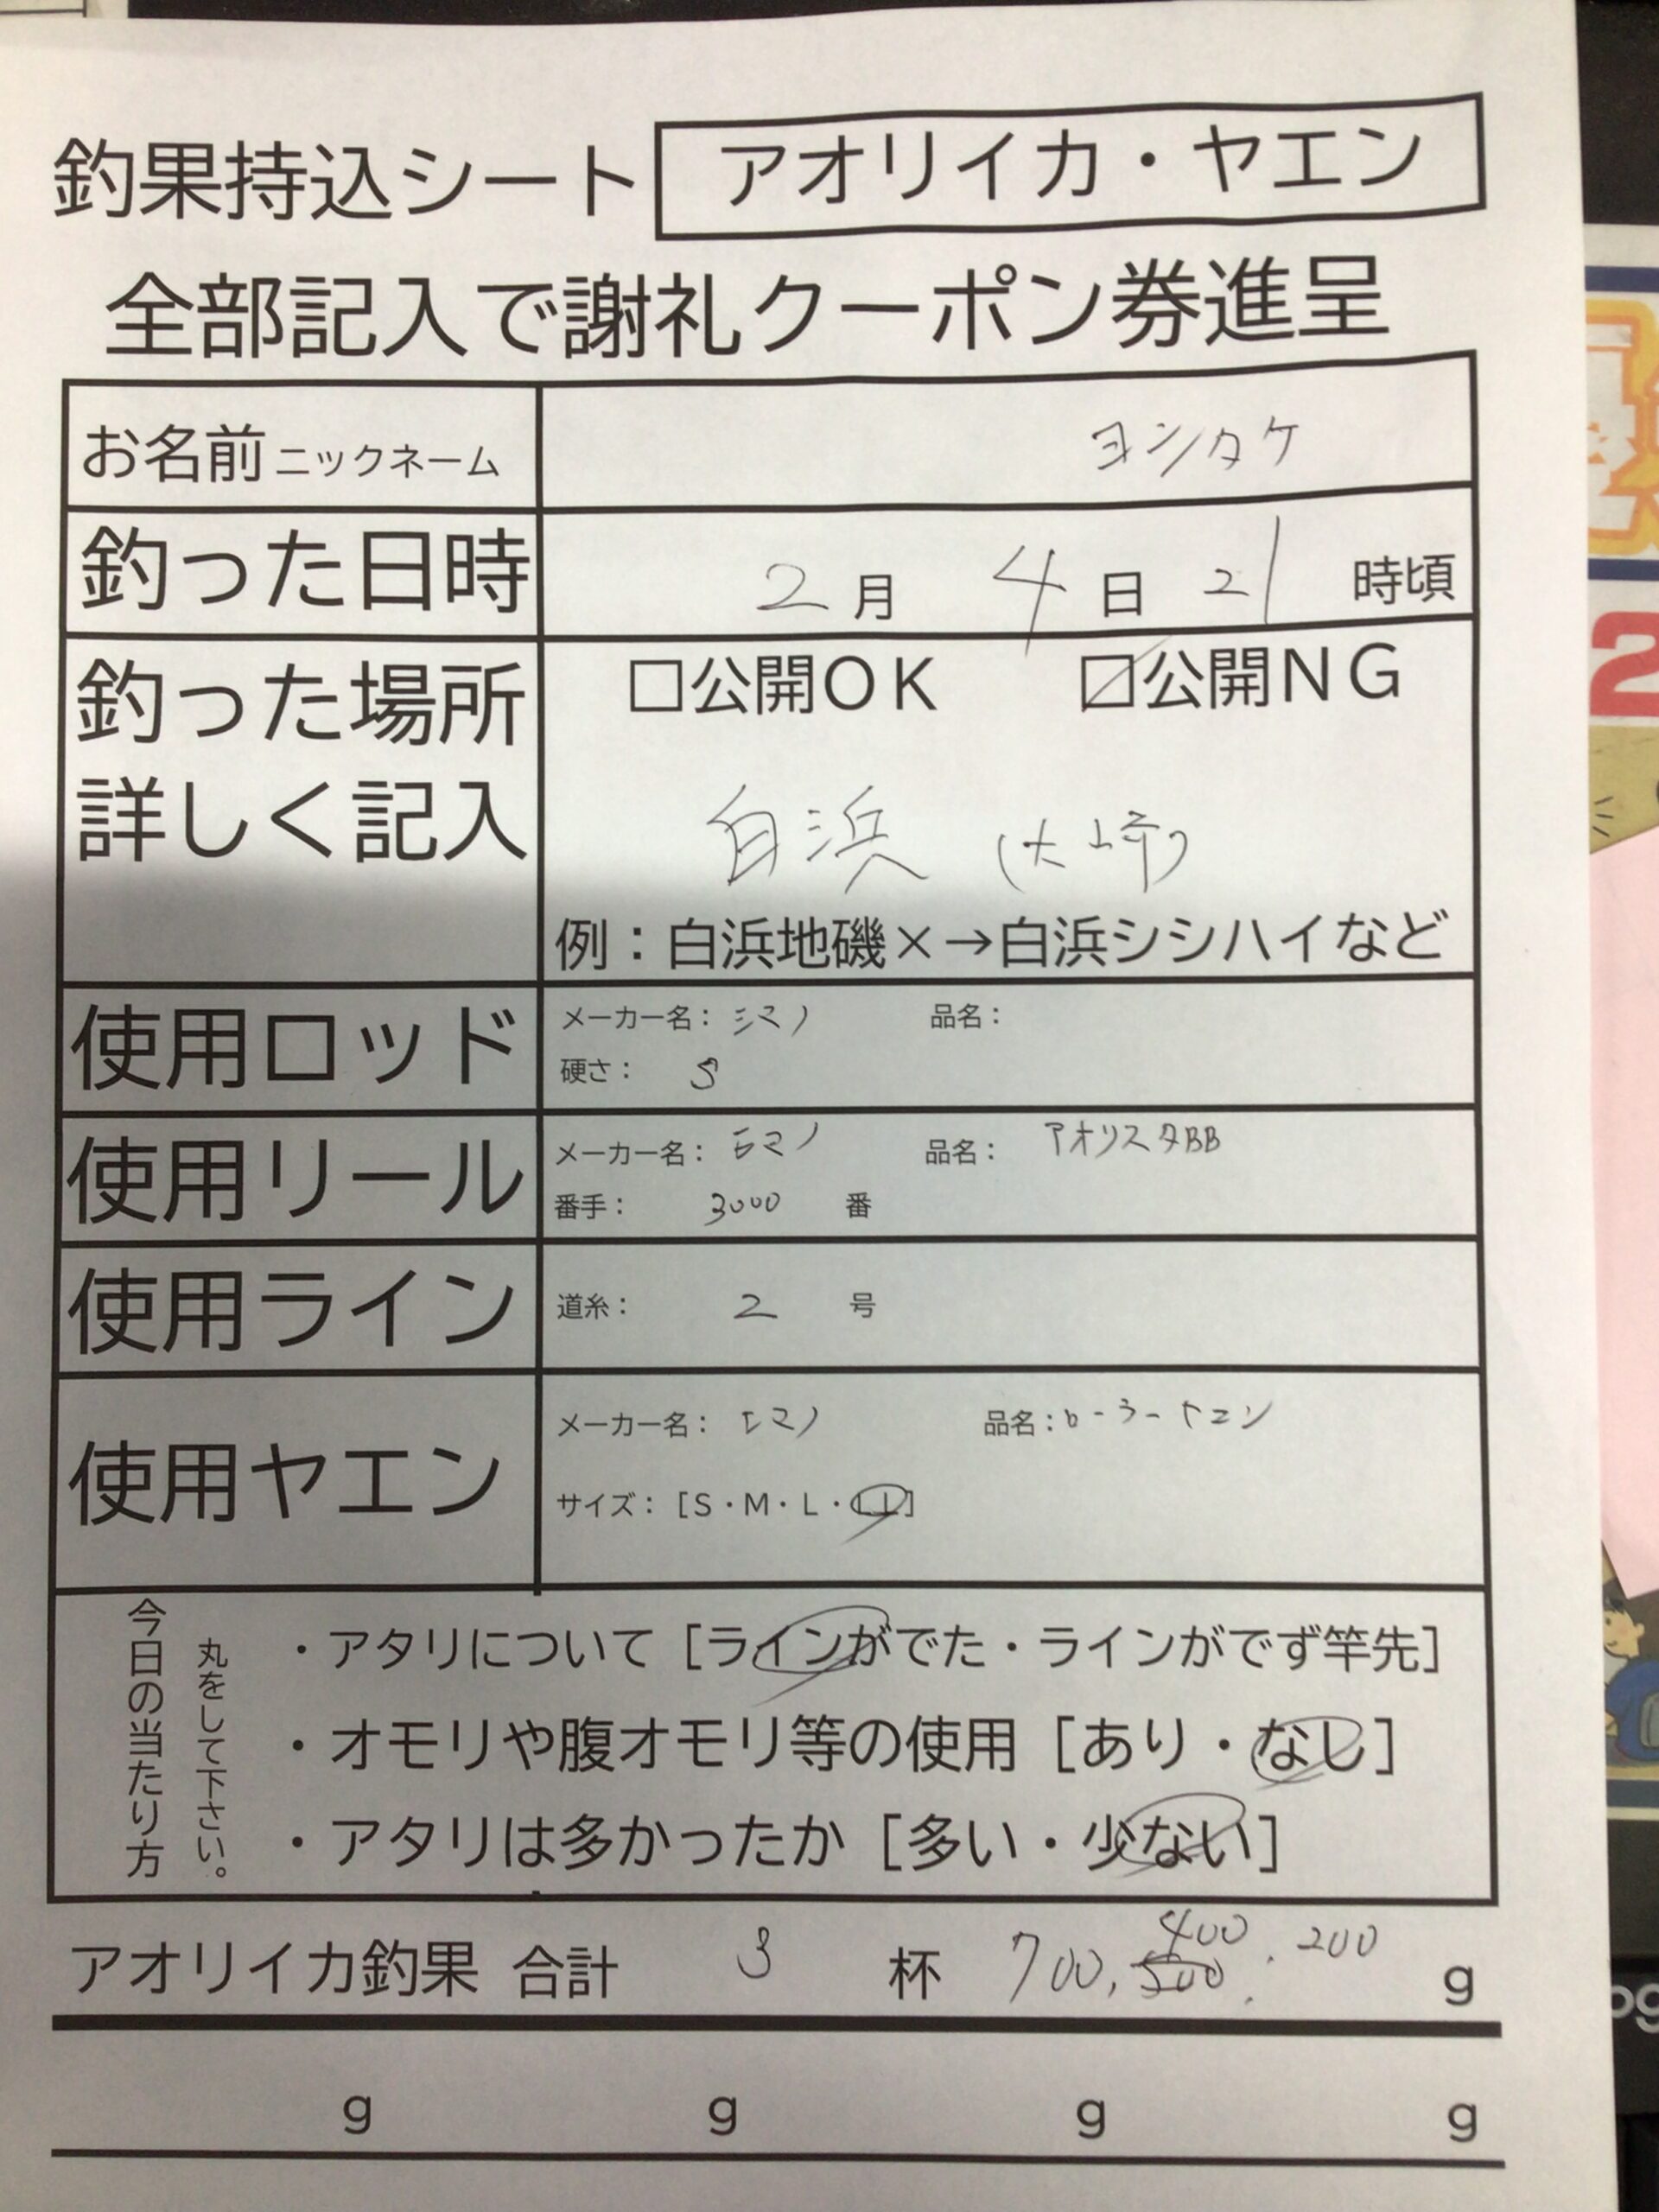 釣果持込シート アオリイカ・ヤエン
全部記入で謝礼クーポン券進呈
お名前 ニックネーム ヨシタケ
釣った日時 2月 4日 21時頃
釣った場所 □公開OK ☑公開NG
詳しく記入 白浜 (大崎)
例：白浜地磯×→白浜シシハイなど
使用ロッド メーカー名： シマノ 品名：
硬さ： S
使用リール メーカー名： シマノ 品名： アオリスタBB
番手： 3000 番
使用ライン 道糸： 2 号
使用ヤエン メーカー名： シマノ 品名：ローラーヤエン
サイズ：［S・M・L・LL］
今日の当たり方
丸をして下さい。
・アタリについて［ラインがでた・ラインがでず竿先］
・オモリや腹オモリ等の使用［あり・なし］
・アタリは多かったか［多い・少ない］
アオリイカ釣果 合計 3 杯 700, 400 . 200 g
g g g g
2